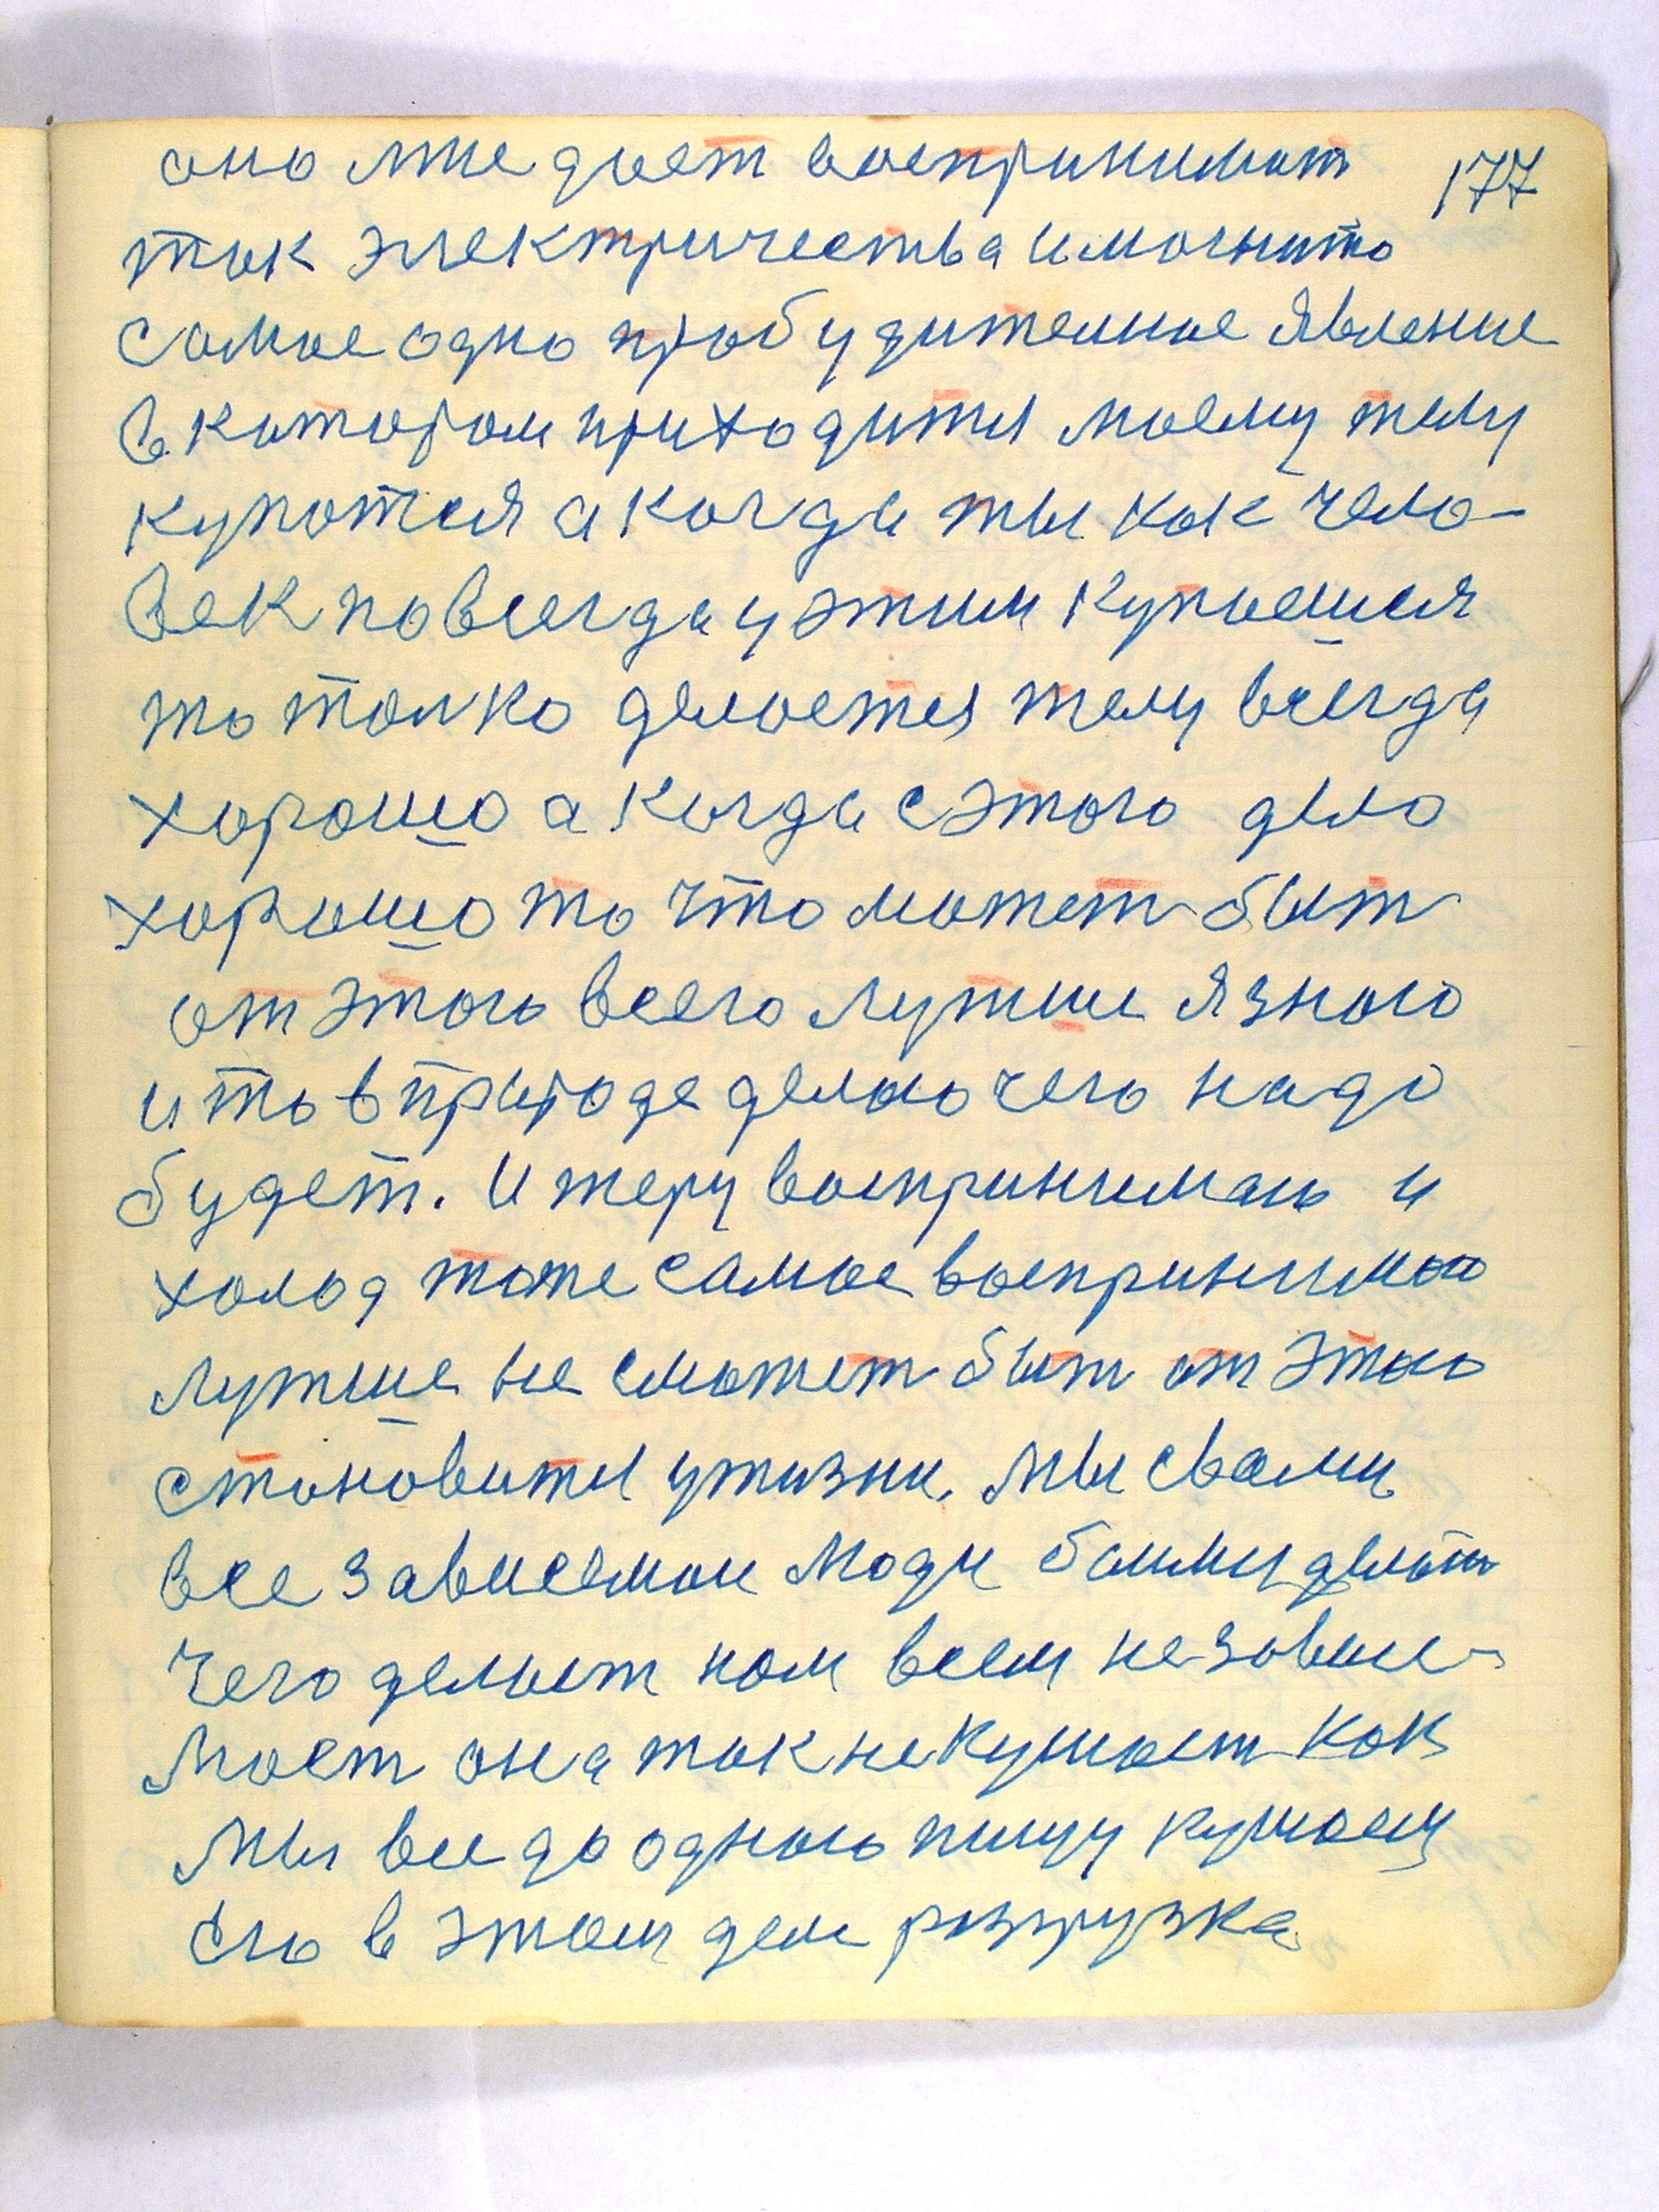 177
оно мне дает воспринимат
ток электричества и могнито
самое одно пробудителное явление
в котором приходится моему телу
купатся а когда ты как чело-
век повсегда у этим купаешся
то толко делается телу всегда
хорошо а когда с этого дело
хорошо то что может быт
от этого всего лутше я знаю
и то в природе делаю чего надо
будет. И жеру воспринимаю и
холод тоже самое воспринимаю
лутше не сможет быт от этого
становится у жизни. Мы с вами
все зависемаи люди делат
чего делает нам всем независ-
мает она так не кушает как
мы все до одного пищу кушаем
его в этом деле розгрузка